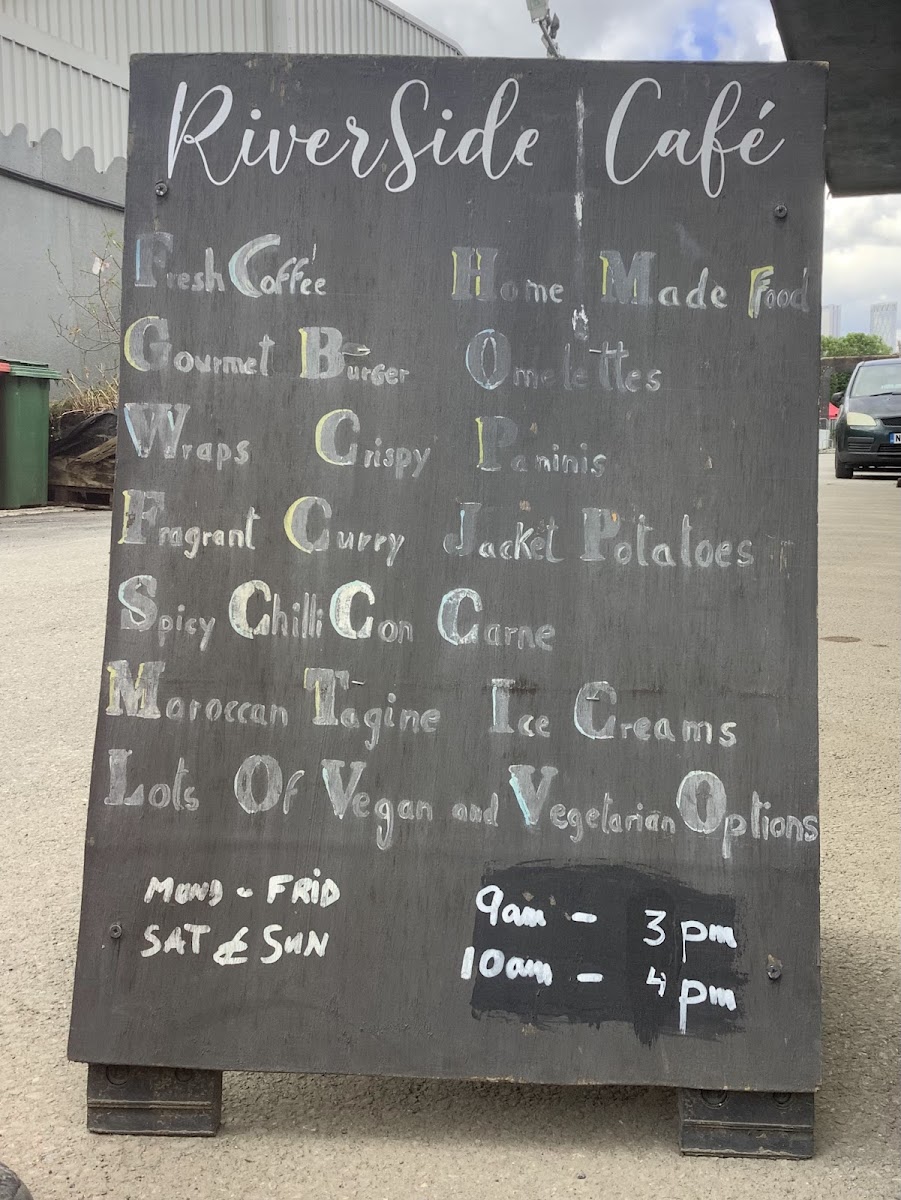 RiverSide Café
Fresh Coffee Home Made Food
Gourmet Burger Omelettes
Wraps Crispy Paninis
Fragrant Curry Jacket Potatoes
Spicy Chilli Con Carne
Moroccan Tagine Ice Creams
Lots Of Vegan and Vegetarian Options
MOND - FRID 9am - 3 pm
SAT & SUN 10am - 4 pm